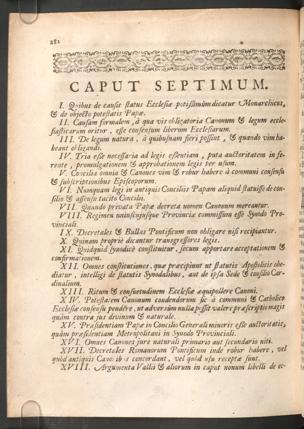 282
CAPUT SEPTIMUM.
I. Quibus de causis status Ecclesiæ potissimum dicatur Monarchicus,
& de objecto potestatis Papæ.
II. Causam formalem, à qua vis obligatoria Canonum & legum eccle-
siasticarum oritur, esse consensum liberum Ecclesiarum.
III. De legum natura, à quibusnam fieri possint, & quando vim ha-
beant obligandi.
IV. Tria esse necessaria ad legis essentiam, puta auctoritatem in fe-
rente, promulgationem & approbationem legis per usum.
V. Concilia omnia & Canones vim & robur habere à communi consensu
& subscriptionibus Episcoporum.
VI. Nunquam legi in antiquis Conciliis Papam aliquid statuisse de con-
silio & assensu tacito Concilii.
VII. Quando privata Papæ decreta nomen Canonum mereantur.
VIII. Regimen uniuscujusque Provinciæ commissum esse Synodo Pro-
vinciali.
IX. Decretales & Bullas Pontificum non obligare nisi recipiantur.
X. Quinam proprie dicantur transgressores legis.
XI. Quidquid Synodice constituitur, secum apportare acceptationem &
confirmationem.
XII. Omnes constitutiones, quæ præcipiunt ut statutis Apostolicis obe-
diatur, intelligi de statutis Synodalibus, aut de ipsa Sede & consilio Car-
dinalium.
XIII. Ritum & consuetudinem Ecclesiæ æquipollere Canoni.
XIV. Potestatem Canonum condendorum sic à communi & Catholico
Ecclesiæ consensu pendere, ut adversùm nulla possit valere præscriptio magis
quàm contra jus divinum & naturale.
XV. Præsidentiam Papæ in Concilio Generali minoris esse auctoritatis,
quàm præsidentiam Metropolitani in Synodo Provinciali.
XVI. Omnes Canones jure naturali primario aut secundario niti.
XVII. Decretales Romanorum Pontificum inde robur habere, vel
quòd antiquis Canonibus concordant, vel quòd usu receptæ sunt.
XVIII. Argumenta Vallii & aliorum in caput nonum libelli de ec-